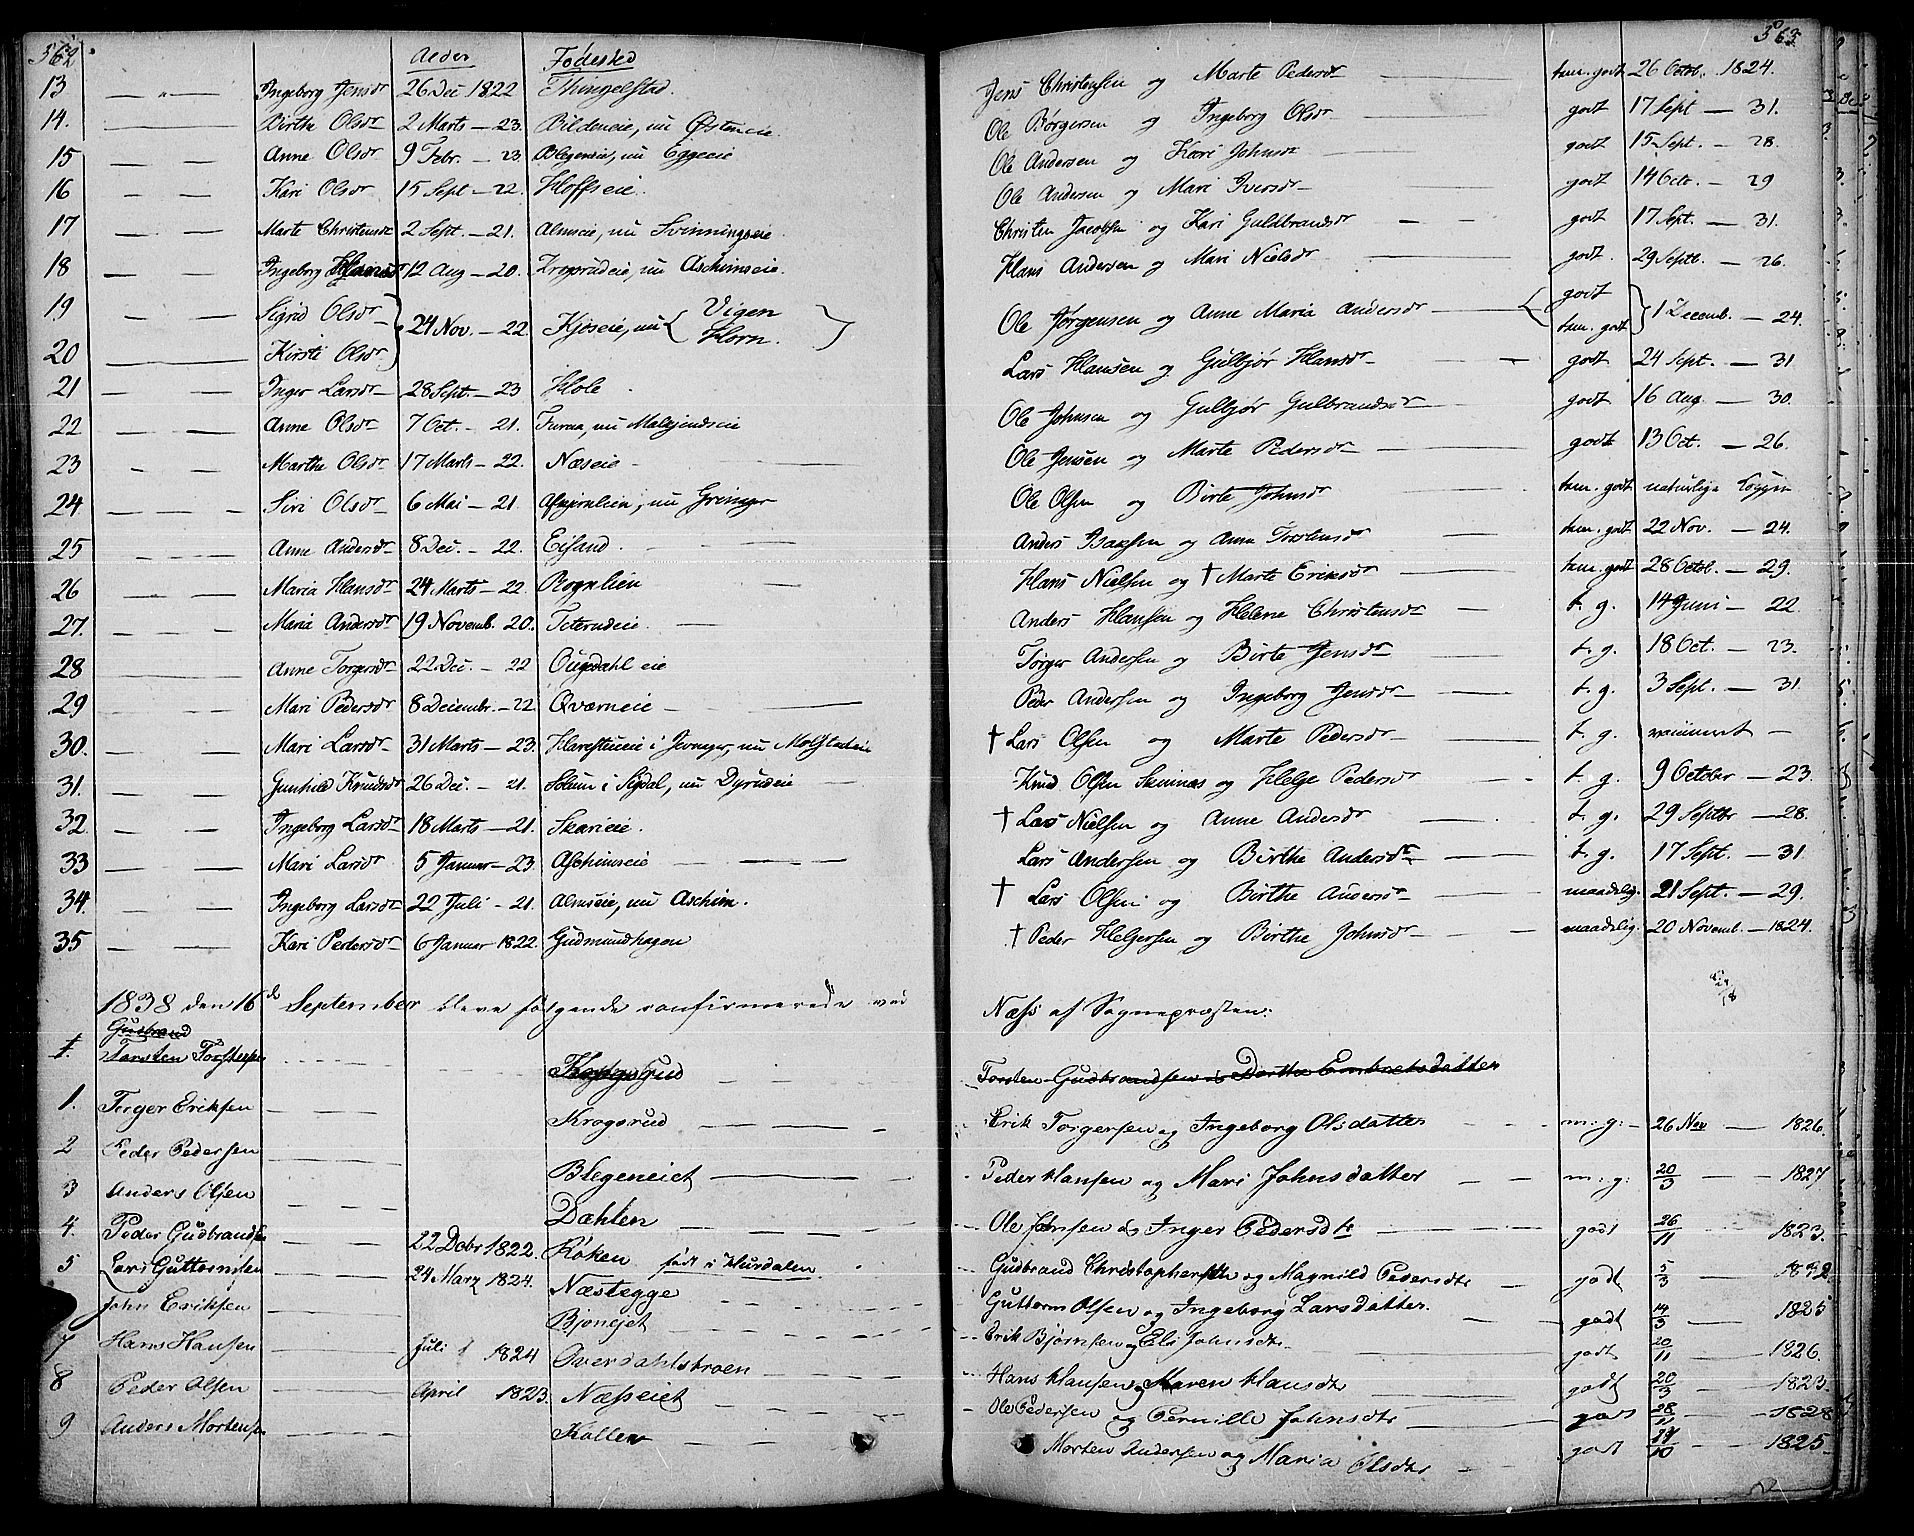 562 563
Alder Fødested
13 — " — Ingeborg Jensdr 26 Dec 1822 Thingelstad. Jens Christensen og Marte Pedersdr — tem. godt 26 Octb. 1824.
14. — Birthe Olsdr 2 Marts — 23. Bildeneie, nu Østeneie. Ole Børgersen og Ingeborg Olsdr — godt 17 Sept — 31.
15 — — Anne Olsdr 9 Febr. — 23 Blegeneie, nu Eggeeie Ole Andersen og Kari Johnsdr — godt 15 Sept. — 28.
16 — — Kari Olsdr 15 Sept — 22. Hoffseie. Ole Andersen og Mari Iversdr — godt 14 Octr. — 29
17 — — Marte Christensdr 2 Sept. — 21. Almseie, nu Svinningseie Christen Jacobsen og Kari Guldbrandsdr — godt 17 Sept. — 31.
18 — — Ingeborg Hansdr 12 Aug — 20. Krogsrudeie, nu Aschimseie. Hans Andersen og Mari Nielsdr godt. 29 Septb. — 26.
19. — Sigrid Olsdr
20 — Kirsti Olsdr 24 Nov. — 22. Kjøseie, nu Vigen Horn. Ole Jørgensen og Anne Maria Andersdr — godt tem. godt 1 Decemb. — 24.
21 — — Inger Larsdr 28 Sept. — 23 Hole. Lars Hansen og Gulbjør Hansdr — godt 24 Sept. — 31.
22 — — Anne Olsdr 7 Oct. — 21. Furua, nu Malkjendseie Ole Johnsen og Gulbjør Gulbrandsdr — godt 16 Aug. — 30.
23 — — Marthe Olsdr 17 Marts — 22. Næseie — Ole Jensen og Marte Pedersdr — godt 13 Oct. — 26.
24 — — Siri Olsdr 6 Mai — 21. nu Gringer Ole Olsen og Birte Johnsdr tem. godt naturlige Kopper
25 — — Anne Andersdr 8 Dec. — 22. Eisand. — Anders Isaksen og Anne Torstensdr tem. godt 22 Nov. — 24.
26 — — Maria Hansdr 24 Marts — 22. Rognlien Hans Nielsen og † Marte Eriksdr — tem. godt 28 Octb. — 29.
27. — — Maria Andersdr 19 Novemb. 20. Teterudeie. — Anders Hansen og Helene Christensdr — t. g. 14 Juni — 22.
28 — — Anne Torgersdr 22 Dec. — 22 Ougedahl eie Torger Andersen og Birte Jensdr t. g. 18 Oct. — 23.
29 — — Mari Pedersdr 8 Decembr. — 22 Qværneie — Peder Andersen og Ingeborg Jensdr — t. g. 3 Sept. — 31.
30. — — Mari Larsdr 31 Marts — 23. Harestueeie i Jevnager, nu Molstadeie † Lars Olsen og Marte Pedersdr — t. g. vaccineret —
31. — — Gunhild Knudsdr 26 Dec. — 21. Solum i Sigdal, nu Dyrudeie — Knud Olsen og Helge Pedersdr — t. g. 9 October — 23.
32. — — Ingeborg Larsdr 18 Marts — 21. Skarieie. † Lars Nielsen og Anne Andersdr t. g. 29 Septbr — 28.
33 — — Mari Larsdr 5 Januar — 23. Aschimseie — Lars Andersen og Birthe Andersdr — t. g. 17 Sept. — 31.
34. — — Ingeborg Larsdr 22 Juli — 21. Almseie, nu Aschim. † Lars Olsen og Birthe Andersdr — maadelig. 21 Sept. — 29.
35 — — Kari Pedersdr 6 Januar 1822. Gudmundhagen † Peder Helgersen og Birthe Johnsdr — maadelig. 20 Novemb. — 1824.
1838 den 16de September bleve følgende confirmerede ved Næss af Sogneprosten:
Gudbrand
1. Torsten Torstensen Krogsrud Torsten Gudbrandsen og Dorthe Embretsdatter
1. Torger Eriksen Krogsrud Erik Torgersen og Ingeborg Olsdatter m: g: 26 Nov — 1826.
2 Peder Pedersen Blegeneiet Peder Hansen og Mari Johnsdatter m: g: 20/3 — 1827
3 Anders Olsen Dæhlen Ole Jensen og Inger Pedersdtr godt 26/11 — 1823.
4. Peder Gudbrandsen 22 Decbr 1822. Røken født i Hurdalen. Gudbrand Christophersen og Magnild Pedersdtr godt 5/3
5 Lars Guttormsen 24 Marz 1824. Næstegge Guttorm Olsen og Ingeborg Larsdatter. godt 14/3 — 1825
John Eriksen Bjoneiet Erik Bjørnsen og Eli Johnsdtr. godt 20/11 — 1826.
7 Hans Hansen Juli 1824 Overdahlskroen Hans Hansen og Maren Hansdtr godt 20/3 — 1823.
8 Peder Olsen April 1823. Næsseiet Ole Pedersen og Pernille Johnsdtr godt 28/11 — 1828
9 Anders Mortensen Kollen Morten Andersen og Maria Olsdtr godt 1825.